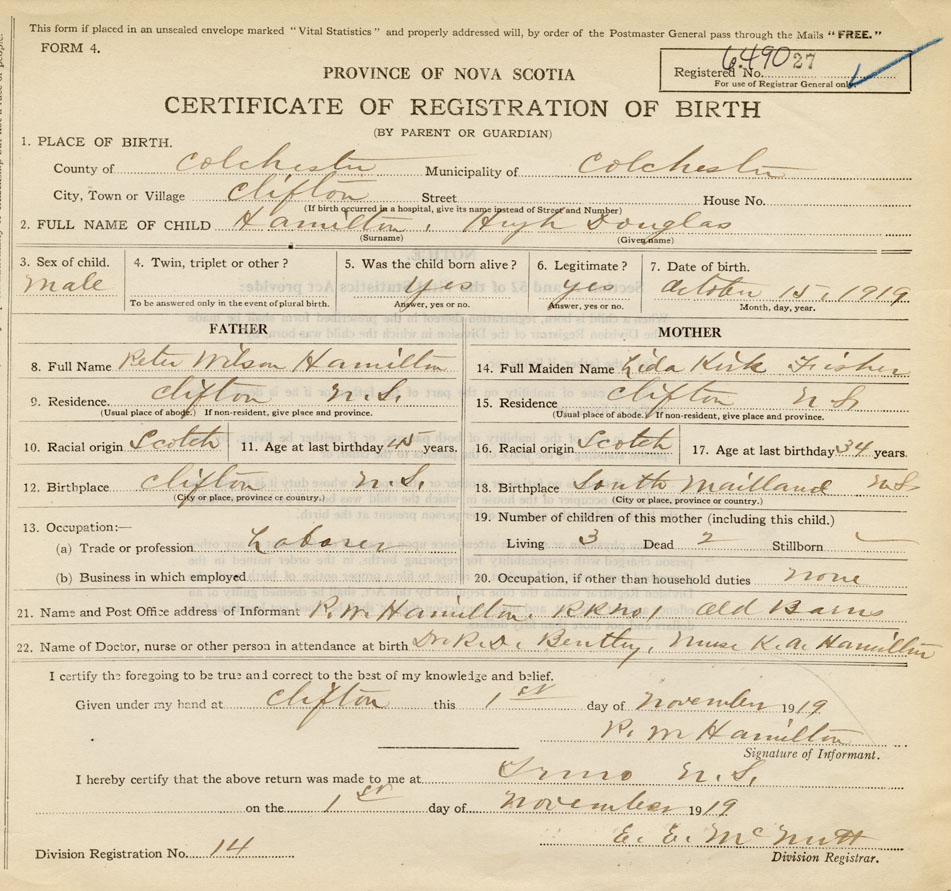 This form if placed in an unsealed envelope marked "Vital Statistics" and properly addressed will, by order of the Postmaster General pass through the Mails "FREE."
FORM 4.
Registered No. 6490 27
For use of Registrar General only
PROVINCE OF NOVA SCOTIA
CERTIFICATE OF REGISTRATION OF BIRTH
(BY PARENT OR GUARDIAN)
1. PLACE OF BIRTH.
County of Colchester Municipality of Colchester
City, Town or Village Clifton Street House No.
(If birth occurred in a hospital, give its name instead of Street and Number)
2. FULL NAME OF CHILD Hamilton, Hugh Douglas
(Surname) (Given name)
3. Sex of child. 4. Twin, triplet or other? 5. Was the child born alive? 6. Legitimate? 7. Date of birth.
Male yes yes October 15, 1919
To be answered only in the event of plural birth. Answer, yes or no. Answer, yes or no. Month, day, year.
FATHER MOTHER
8. Full Name Peter Wilson Hamilton 14. Full Maiden Name Lida Kirk Fisher
9. Residence. Clifton N.S. 15. Residence Clifton N S
(Usual place of abode.) If non-resident, give place and province. (Usual place of abode.) If non-resident, give place and province.
10. Racial origin Scotch 11. Age at last birthday 45 years. 16. Racial origin Scotch 17. Age at last birthday 34 years.
12. Birthplace Clifton N.S. 18. Birthplace South Maitland N S
(City or place, province or country.) (City or place, province or country.)
13. Occupation:— 19. Number of children of this mother (including this child.)
(a) Trade or profession Laborer Living 3 Dead 2 Stillborn
(b) Business in which employed 20. Occupation, if other than household duties none
21. Name and Post Office address of Informant P. W. Hamilton, RR no 1 Old Barns
22. Name of Doctor, nurse or other person in attendance at birth Dr. R. D. Bentley, Nurse K. A. Hamilton
I certify the foregoing to be true and correct to the best of my knowledge and belief.
Given under my hand at Clifton this 1st day of November 1919
P. W Hamilton
Signature of Informant.
I hereby certify that the above return was made to me at Truro N.S.
on the 1st day of November 1919
E. E. McNutt
Division Registration No. 14 Division Registrar.